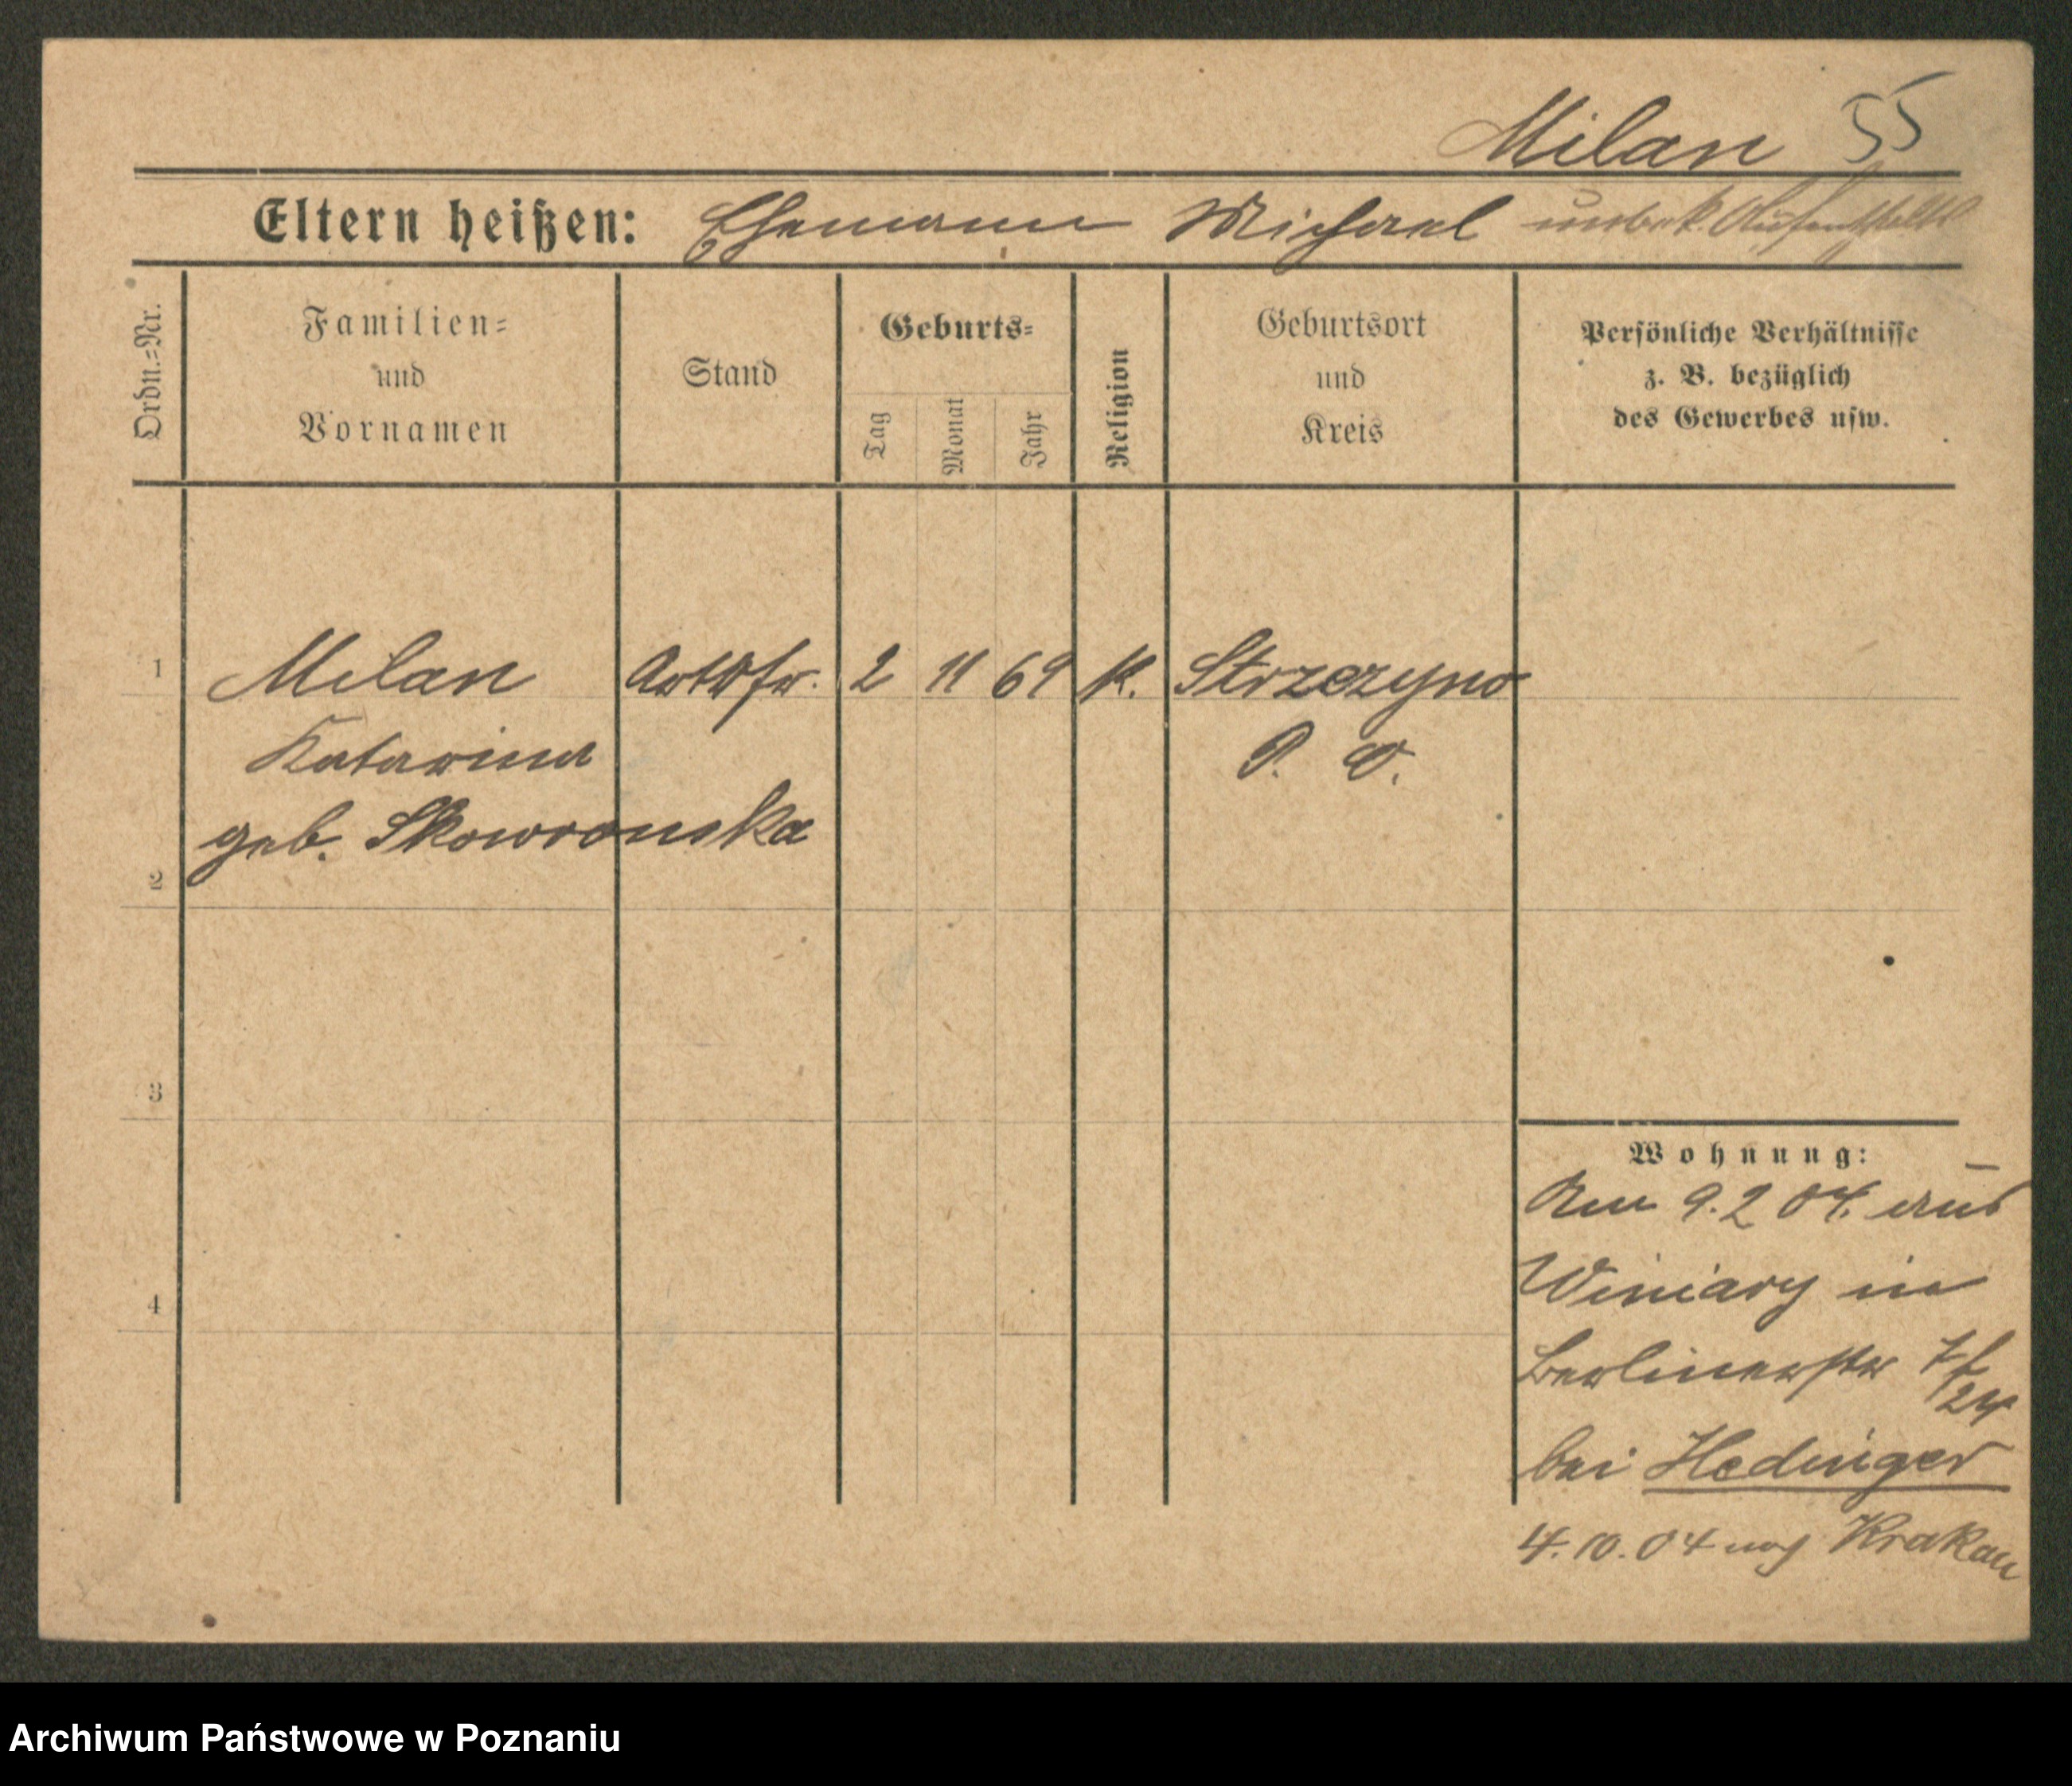 Milan 55
Eltern heißen: Ehemann Michael unbek. Aufenthalts
Ordn.=Nr.
Familien=
und
Vornamen
Stand
Geburts=
Tag
Monat
Jahr
Religion
Geburtsort
und
Kreis
Persönliche Verhältnisse
z. B. bezüglich
des Gewerbes usw.
1 Milan 2 11 69 K. Strzezyno
Katarina P. O.
geb. Skowronska
2
3
4
Wohnung:
Am 9.2 04. aus
Winiary in
Berlinerstr 7/24
bei Hedinger
4.10.04 nach Krakau
Archiwum Państwowe w Poznaniu